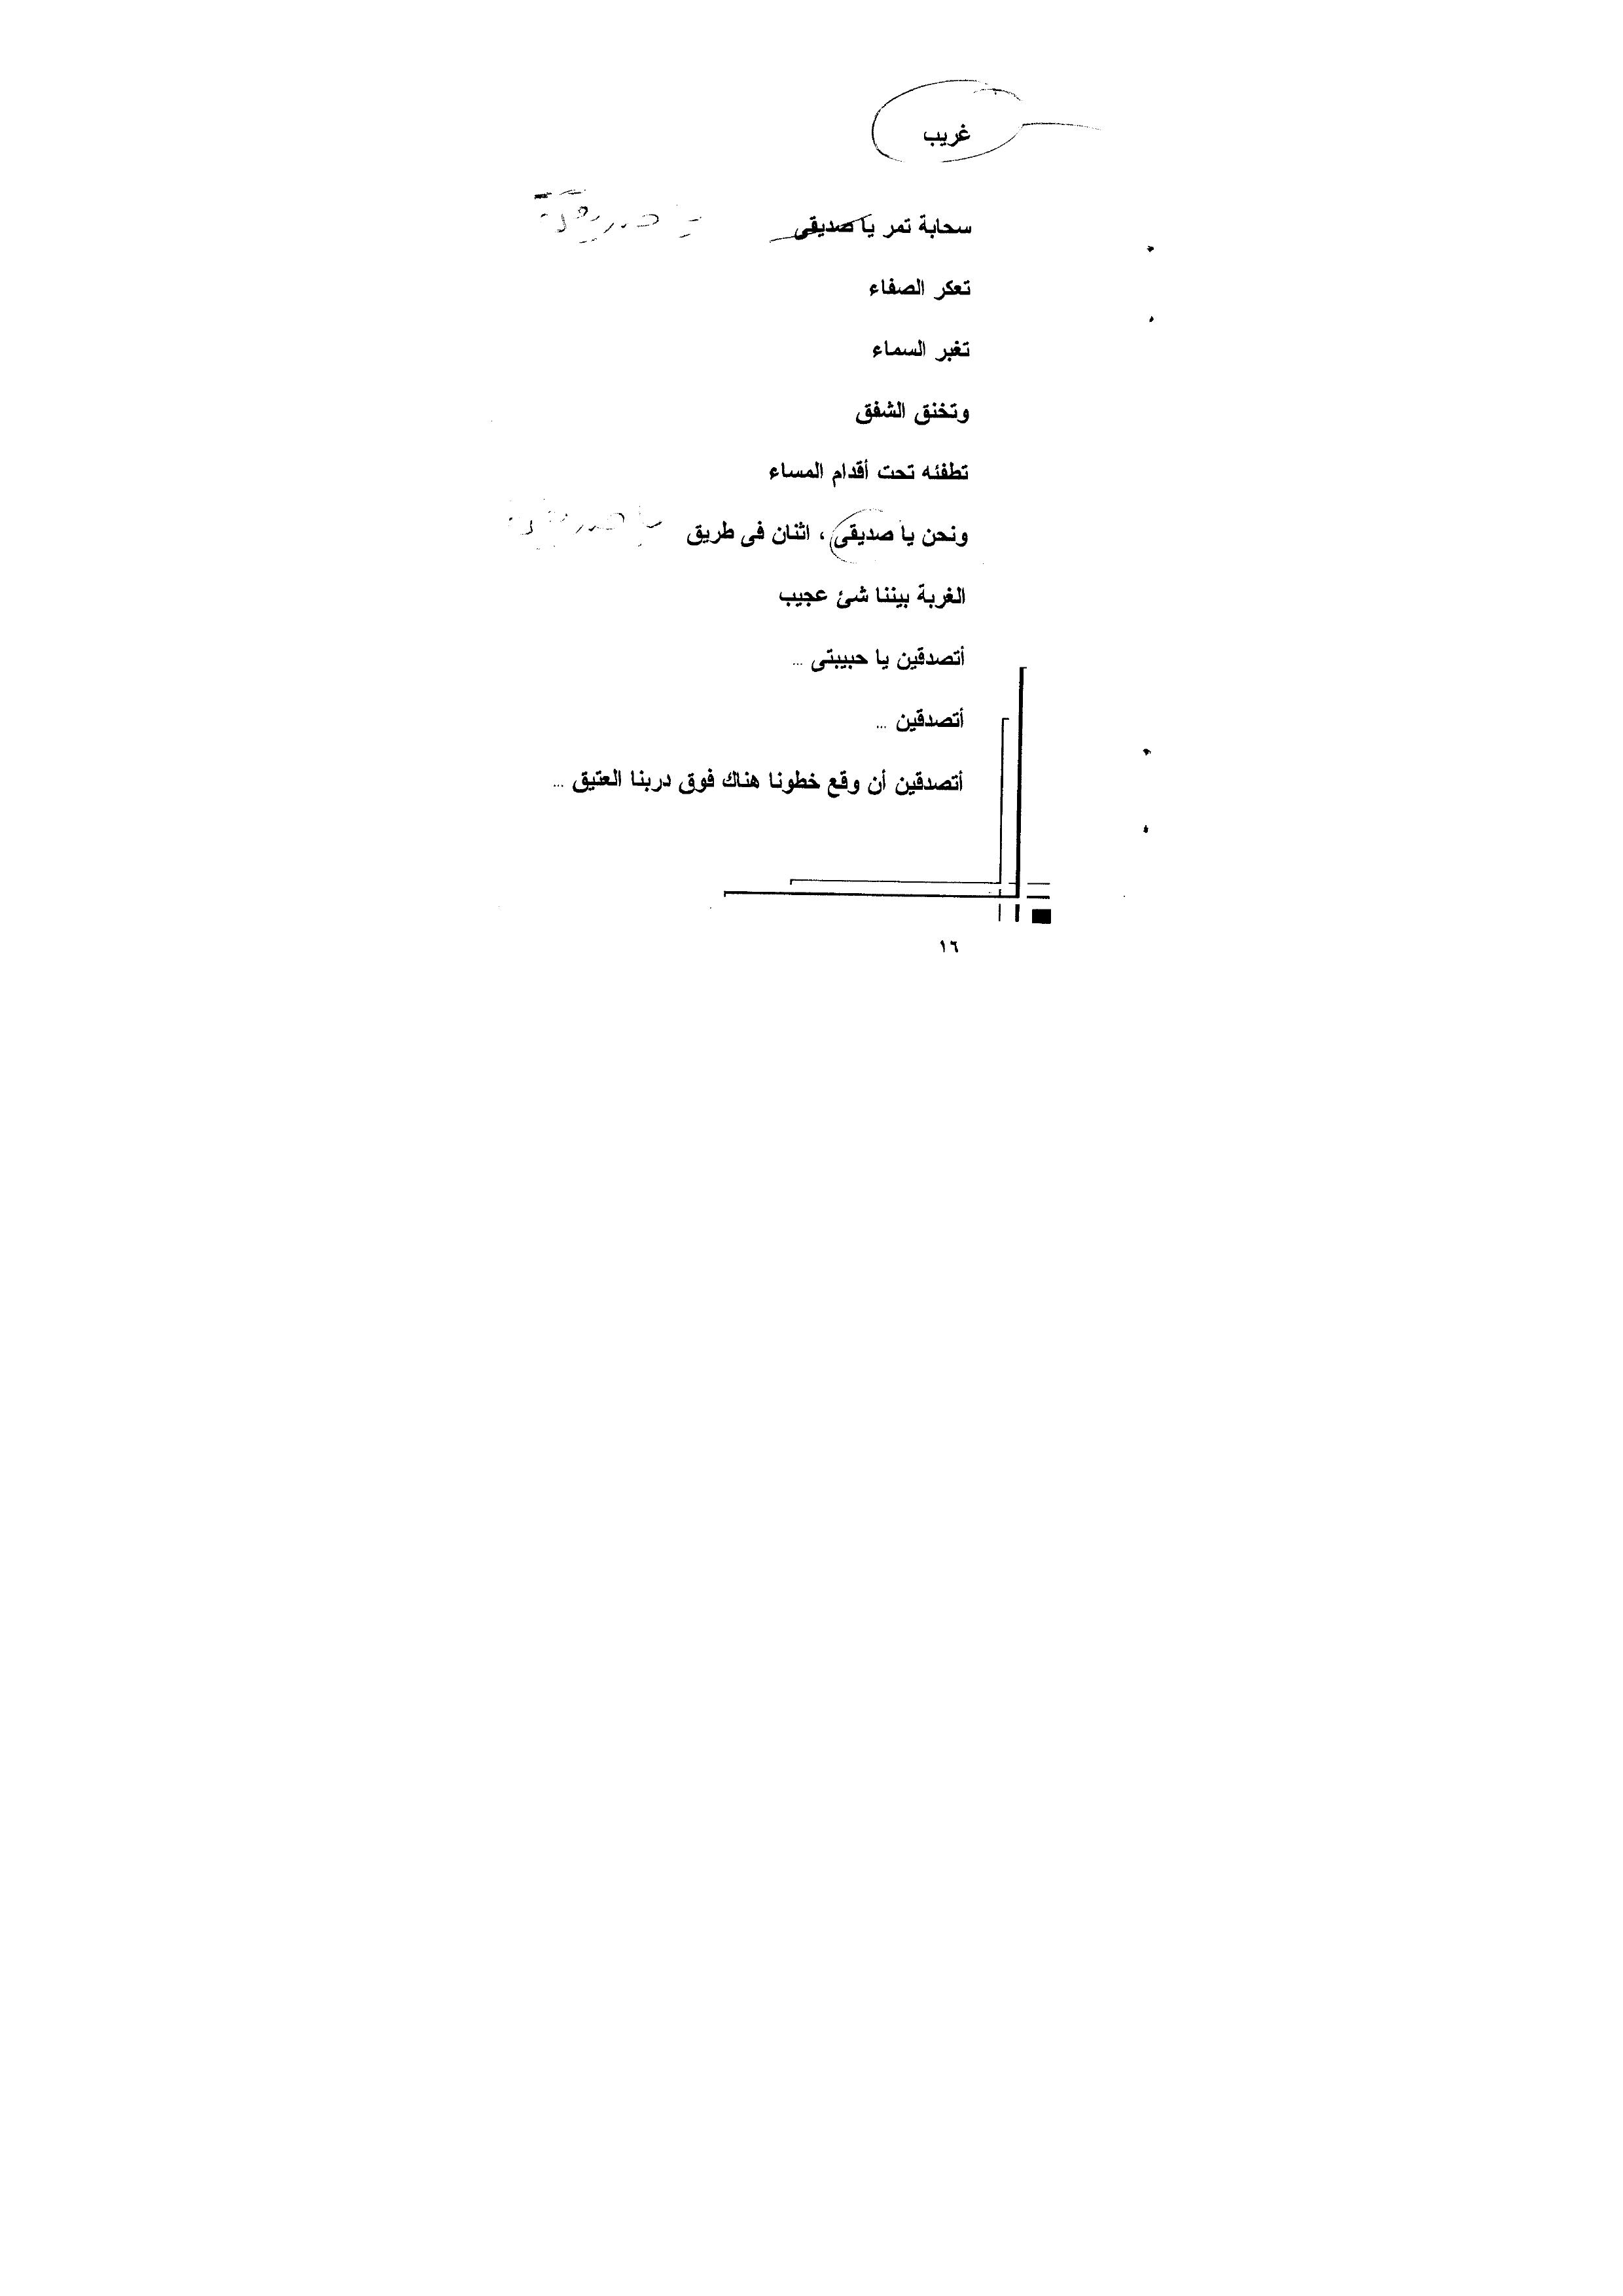 غريب
سحابة تمر يا صديقى
تعكر الصفاء
تغبر السماء
وتخنق الشفق
تطفئه تحت أقدام المساء
ونحن يا صديقى ، اثنان فى طريق
الغربة بيننا شئ عجيب
أتصدقين يا حبيبتى ...
أتصدقين ...
أتصدقين أن وقع خطونا هناك فوق دربنا العتيق ...
١٦